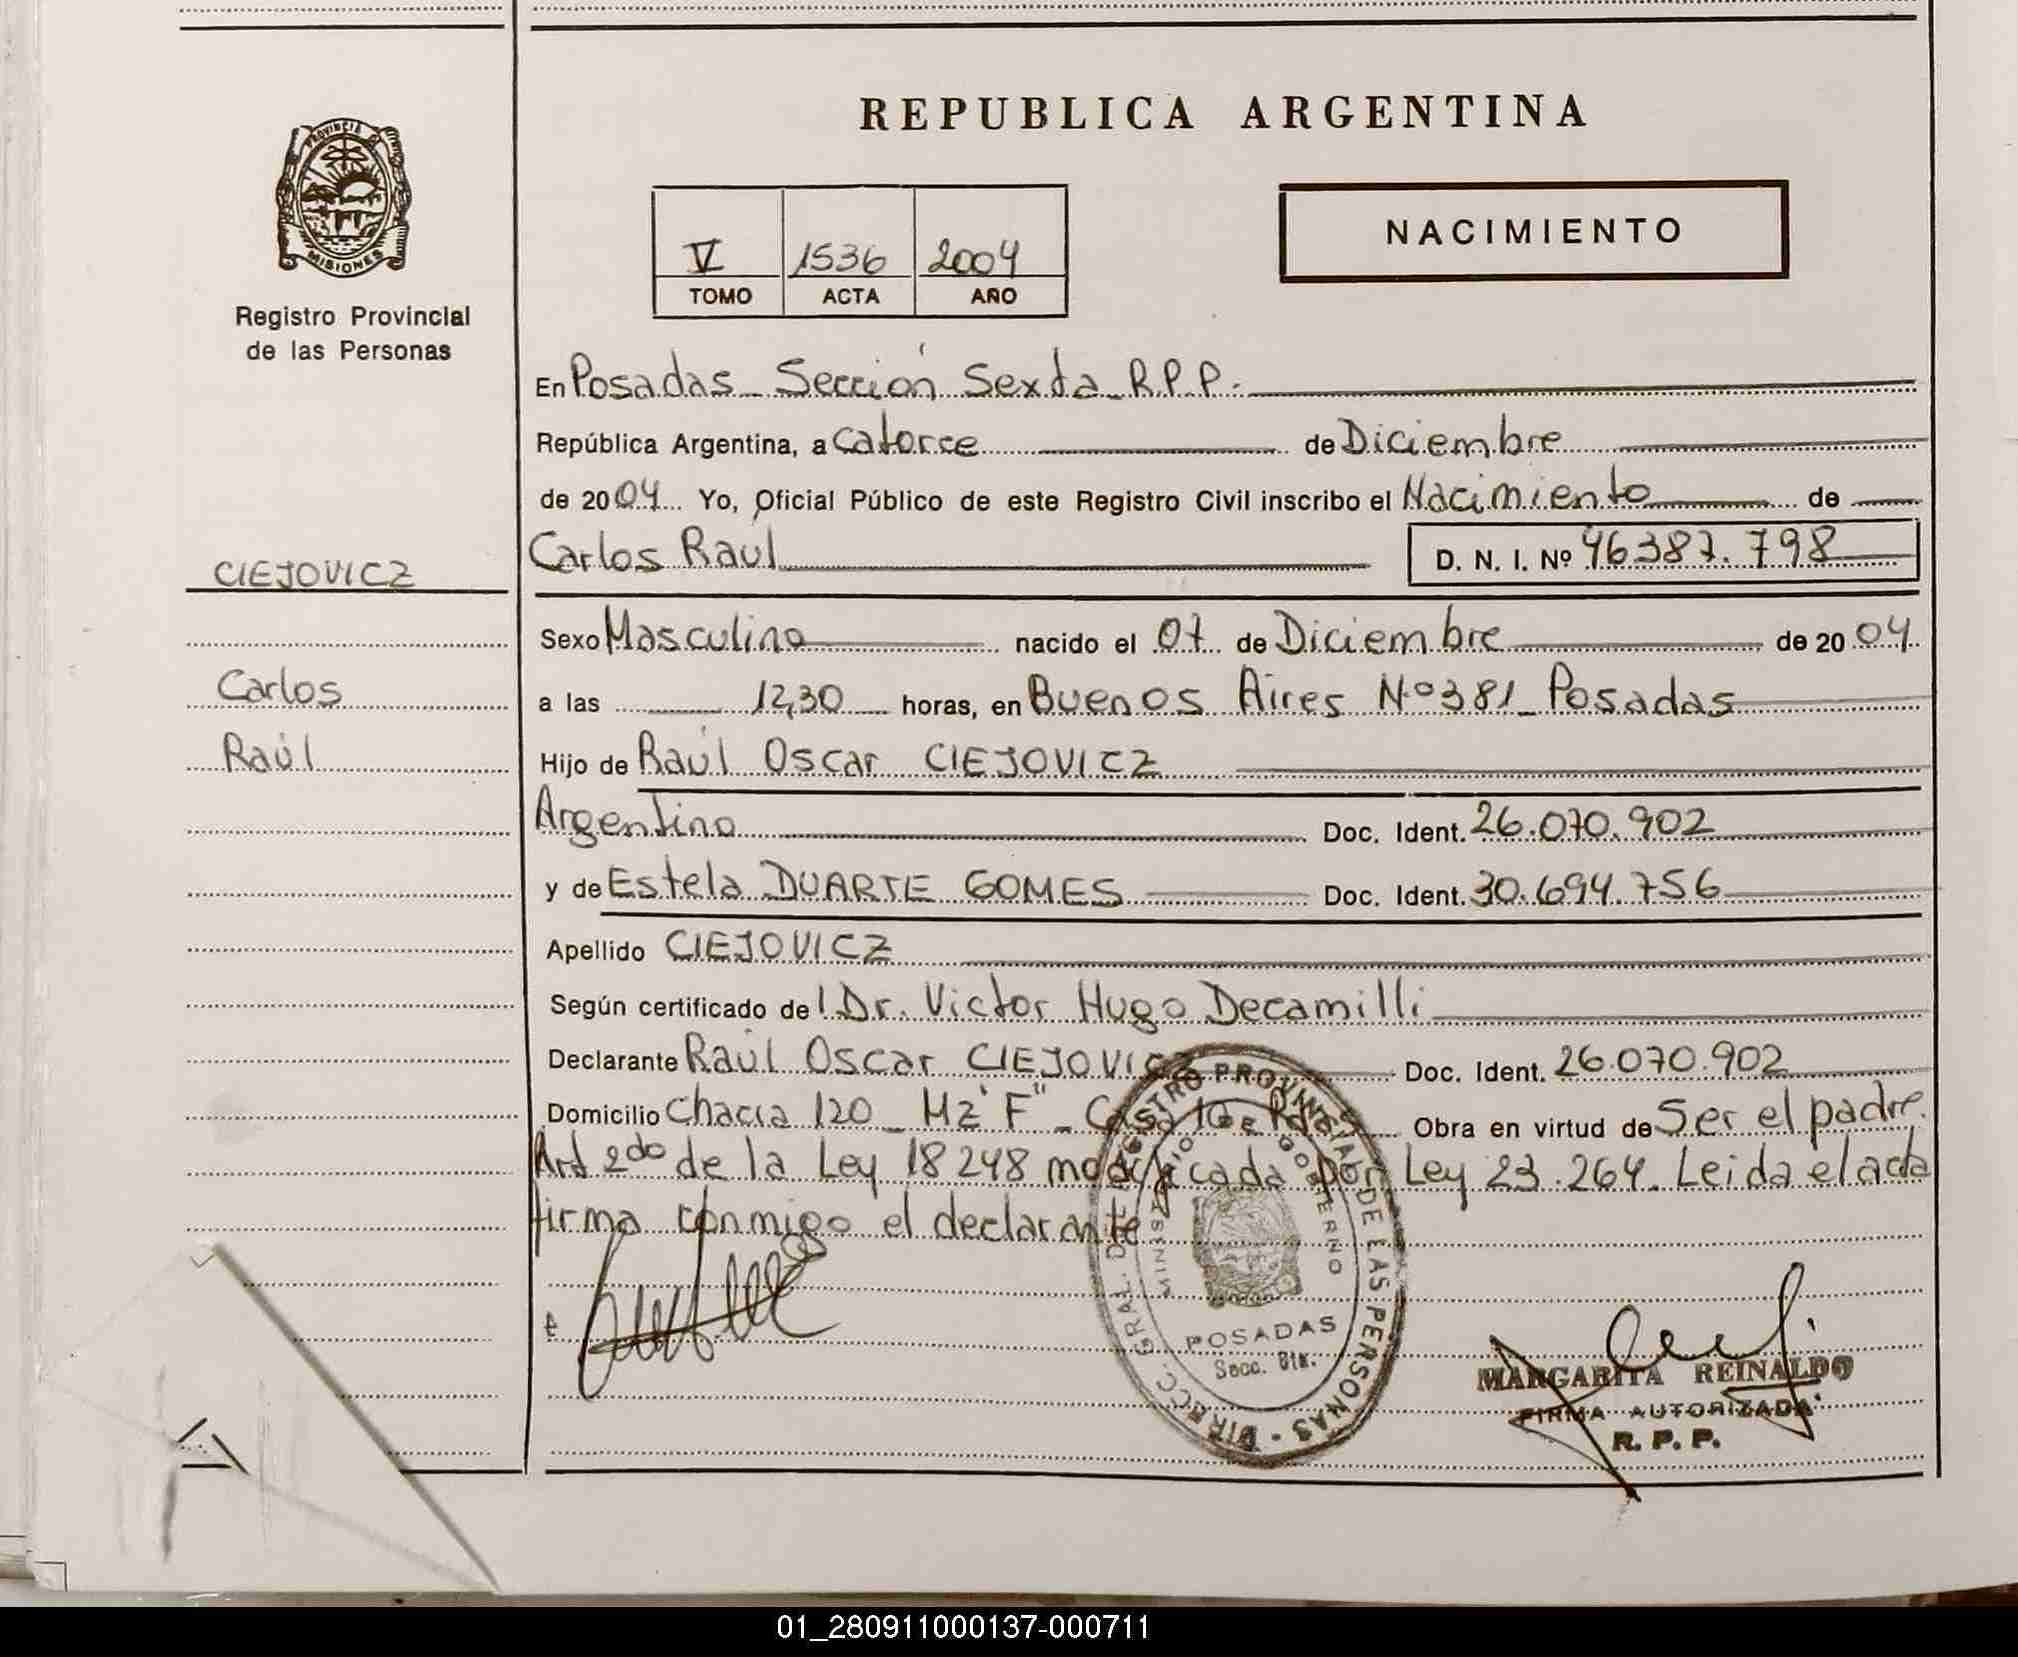 REPUBLICA ARGENTINA
PROVINCIA
MISIONES
Registro Provincial
de las Personas
V 1536 2004
TOMO ACTA AÑO
NACIMIENTO
En Posadas - Sección Sexta - R.P.P.-
República Argentina, a Catorce de Diciembre
de 2004 Yo, Oficial Público de este Registro Civil inscribo el Nacimiento de
CIEJOVICZ
Carlos Raúl D. N. I. Nº 46387.798
Sexo Masculino nacido el 07 de Diciembre de 2004
Carlos
a las 12,30 horas, en Buenos Aires Nº 381 - Posadas
Raúl
Hijo de Raúl Oscar CIEJOVICZ
Argentino Doc. Ident. 26.070.902
y de Estela DUARTE GOMES Doc. Ident. 30.694.756
Apellido CIEJOVICZ
Según certificado del Dr. Victor Hugo Decamilli
Declarante Raúl Oscar CIEJOVICZ Doc. Ident. 26.070.902
Domicilio Chacra 120 - Mz "F" - Casa Obra en virtud de Ser el padre.
Art 2do de la Ley 18248 modificada por Ley 23.264. Leida el acta
firma conmigo el declarante
DIRECC. GRAL. DE REGISTRO PROVINCIAL DE LAS PERSONAS -
MINISTERIO GOBIERNO
POSADAS
Secc. 6ta.
MARGARITA REINALDO
FIRMA AUTORIZADA
R. P. P.
01_280911000137-000711